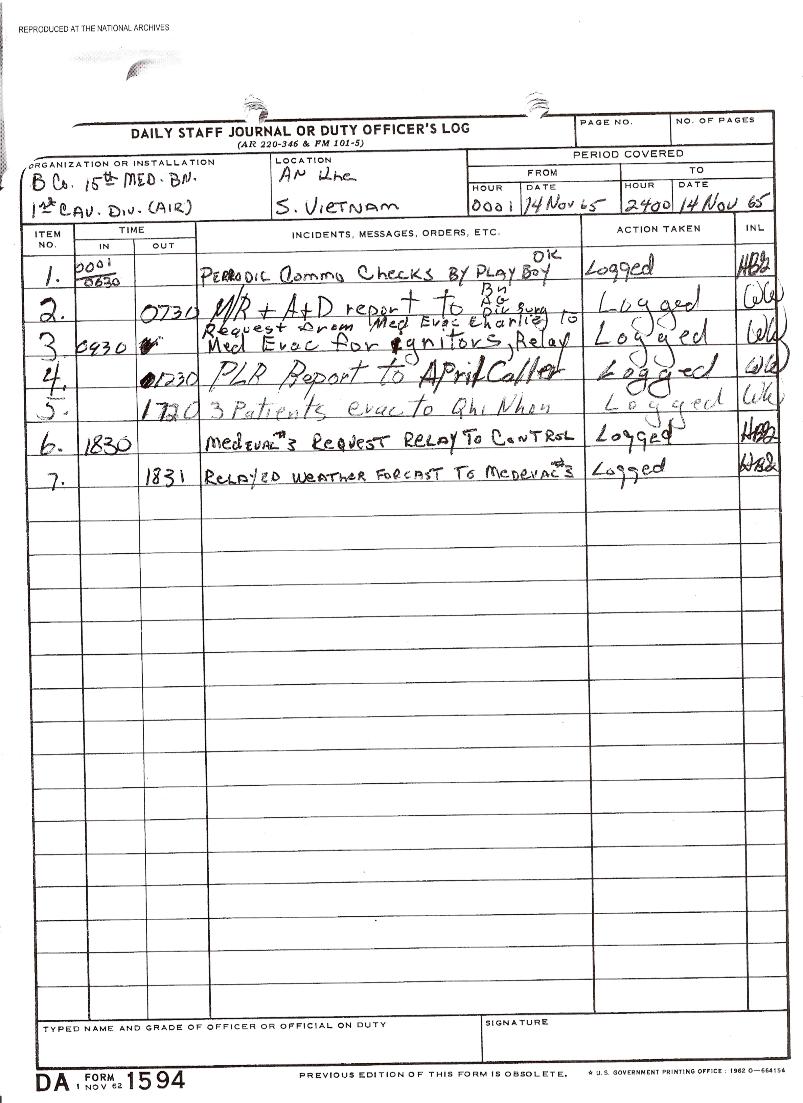 REPRODUCED AT THE NATIONAL ARCHIVES
DAILY STAFF JOURNAL OR DUTY OFFICER'S LOG
(AR 220-346 & FM 101-5)
PAGE NO.
NO. OF PAGES
ORGANIZATION OR INSTALLATION
B Co. 15th MED. BN.
1st CAV. DIV. (AIR)
LOCATION
AN Khe
S. VIETNAM
PERIOD COVERED
FROM
TO
HOUR
DATE
HOUR
DATE
0001
14 Nov 65
2400
14 Nov 65
ITEM NO.
TIME
IN
OUT
INCIDENTS, MESSAGES, ORDERS, ETC.
ACTION TAKEN
INL
1. 0001 0630 PERRODIC Commo Checks By PLAY BOY OK Logged HBJ
2. 0730 M/R & A&D report to Bn Div Surg Logged WW
3 0930 Request from Med Evac Charlie to
Med Evac for Ignitors, Relay Logged WW
4. 01230 PLR Report to April Caller Logged WW
5. 1720 3 Patients evac to Qhi Nhon Logged WW
6. 1830 MEDEVAC #3 REQUEST RELAY TO CONTROL Logged HBJ
7. 1831 RELAYED WEATHER FORCAST TO MEDEVAC #3 Logged HBJ
TYPED NAME AND GRADE OF OFFICER OR OFFICIAL ON DUTY
SIGNATURE
DA FORM 1 NOV 62 1594
PREVIOUS EDITION OF THIS FORM IS OBSOLETE.
* U.S. GOVERNMENT PRINTING OFFICE : 1962 O—664156